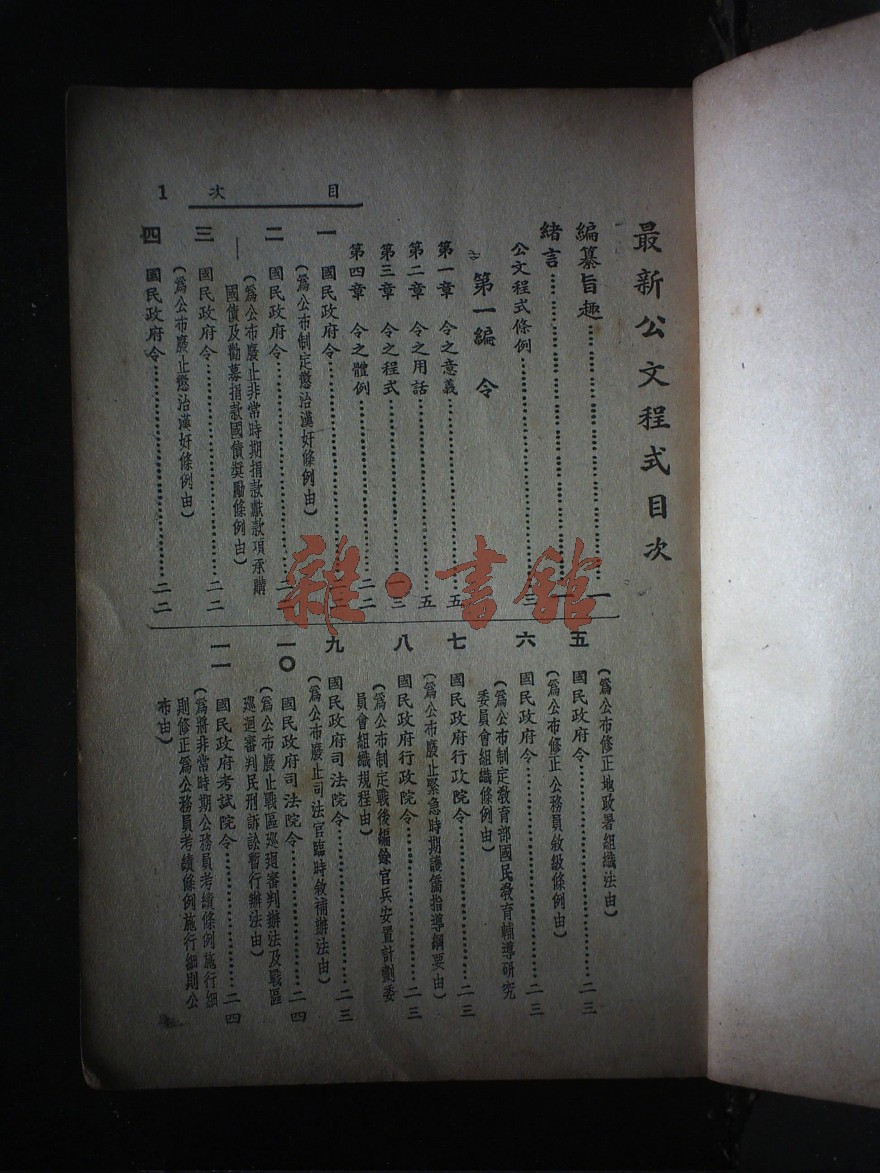 目次 1
最新公文程式目次
編纂旨趣…………一
緒言…………
公文程式條例…………三
第一編 令
第一章 令之意義…………五
第二章 令之用語…………五
第三章 令之程式…………一三
第四章 令之體例…………二二
一 國民政府令…………
(爲公布制定懲治漢奸條例由)
二 國民政府令…………二
(爲公布廢止非常時期捐款獻款項承購
國債及勸募捐款國債獎勵條例由)
三 國民政府令…………二二
(爲公布廢止懲治漢奸條例由)
四 國民政府令…………二二
(爲公布修正地政署組織法由)
五 國民政府令…………二三
(爲公布修正公務員敘級條例由)
六 國民政府令…………二三
(爲公布制定敎育部國民敎育輔導研究
委員會組織條例由)
七 國民政府行政院令…………二三
(爲公布廢止緊急時期護僑指導綱要由)
八 國民政府行政院令…………二三
(爲公布制定戰後編餘官兵安置計劃委
員會組織規程由)
九 國民政府司法院令…………二三
(爲公布廢止司法官臨時敘補辦法由)
一〇 國民政府司法院令…………二四
(爲公布廢止戰區巡迴審判辦法及戰區
巡迴審判民刑訴訟暫行辦法由)
一一 國民政府考試院令…………二四
(爲將非常時期公務員考績條例施行細
則修正爲公務員考績條例施行細則公
布由)
雜·書館